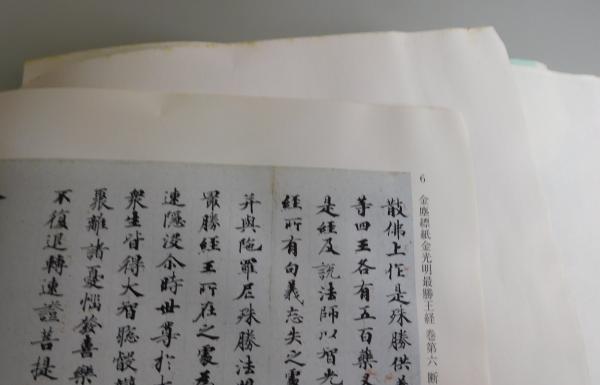 6 金塵縹紙金光明最勝王経 巻第六 断
散佛上作是殊勝供
等四王各有五百藥叉
是經及説法師以智光
經所有句義忘失之處
并與陁羅尼殊勝法
最勝經王所在之處爲
速隠没尒時世尊於
衆生皆得大智聡叡
聚離諸憂惱發喜樂
不復退轉速證菩提